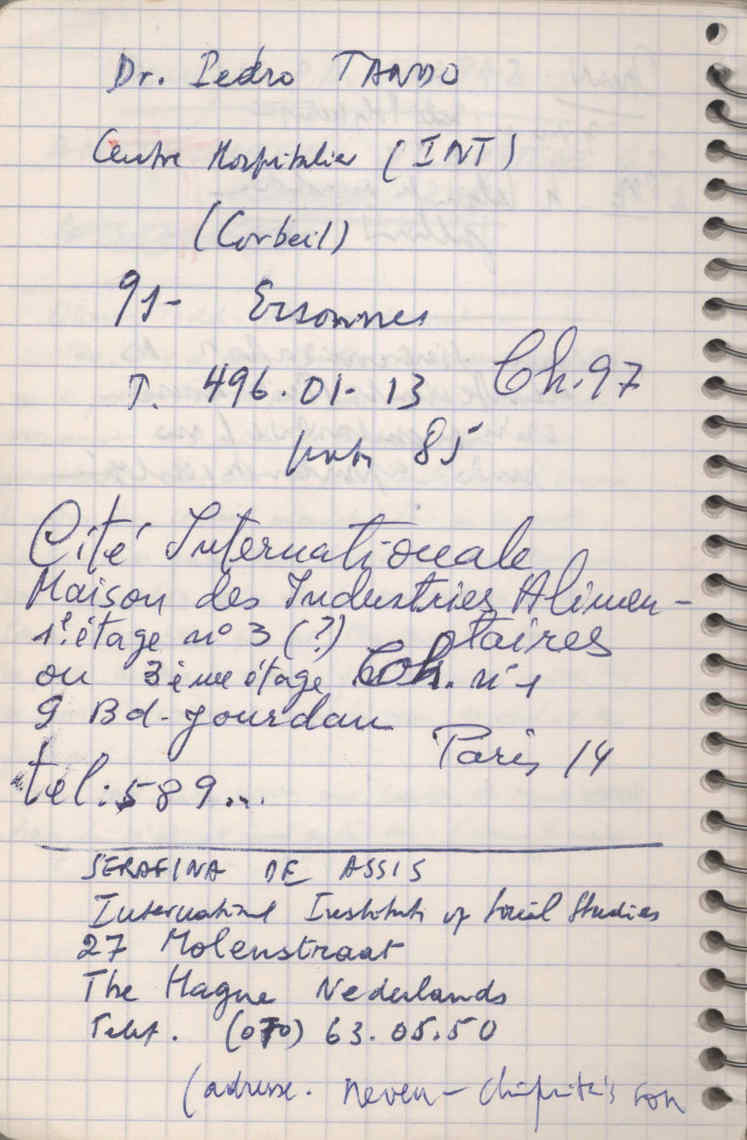 Dr. Pedro TANDO
Centre Hospitalier (INT)
(Corbeil)
91- Essonnes
T. 496.01-13 Ch. 97
85
Cité Internationale
Maison des Industries Alimen-
taires
1e. étage nº 3 (?)
ou 3ème étage Ch. nº 1
9 Bd. Jourdan
Paris 14
tel: 589...
SERAFINA DE ASSIS
International Institute of Social Studies
27 Molenstraat
The Hague Nederlands
Telef. (070) 63.05.50
(adresse. neveu -